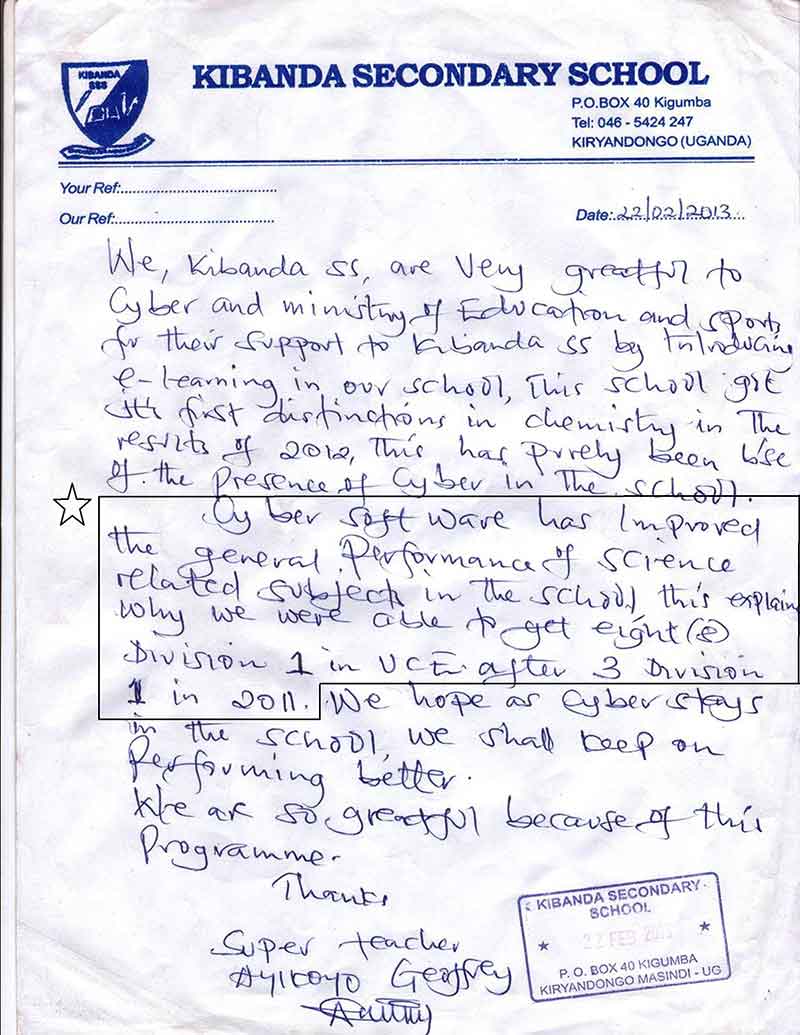 KIBANDA
SSS
KIBANDA SECONDARY SCHOOL
P.O.BOX 40 Kigumba
Tel: 046 - 5424 247
KIRYANDONGO (UGANDA)
Your Ref:
Our Ref:
Date: 22/02/2013
We, Kibanda ss, are Very greatful to
Cyber and ministry of Education and sports
for their support to Kibanda ss by Introducing
e-learning in our school, This school got
its first distinctions in chemistry in The
results of 2012, This has Purely been b'se
of the Presence of Cyber in The school.
Cyber soft ware has Improved
the general Performance of science
related subjects in the school, this explain
why we were able to get eight (8)
Division 1 in UCE after 3 Division
1 in 2011. We hope as Cyber stays
in the school, we shall keep on
Performing better.
We are so greatful because of this
Programme.
Thanks
Super teacher
Ayikoyo Geoffrey
KIBANDA SECONDARY
SCHOOL
22 FEB 2013
P. O. BOX 40 KIGUMBA
KIRYANDONGO MASINDI - UG